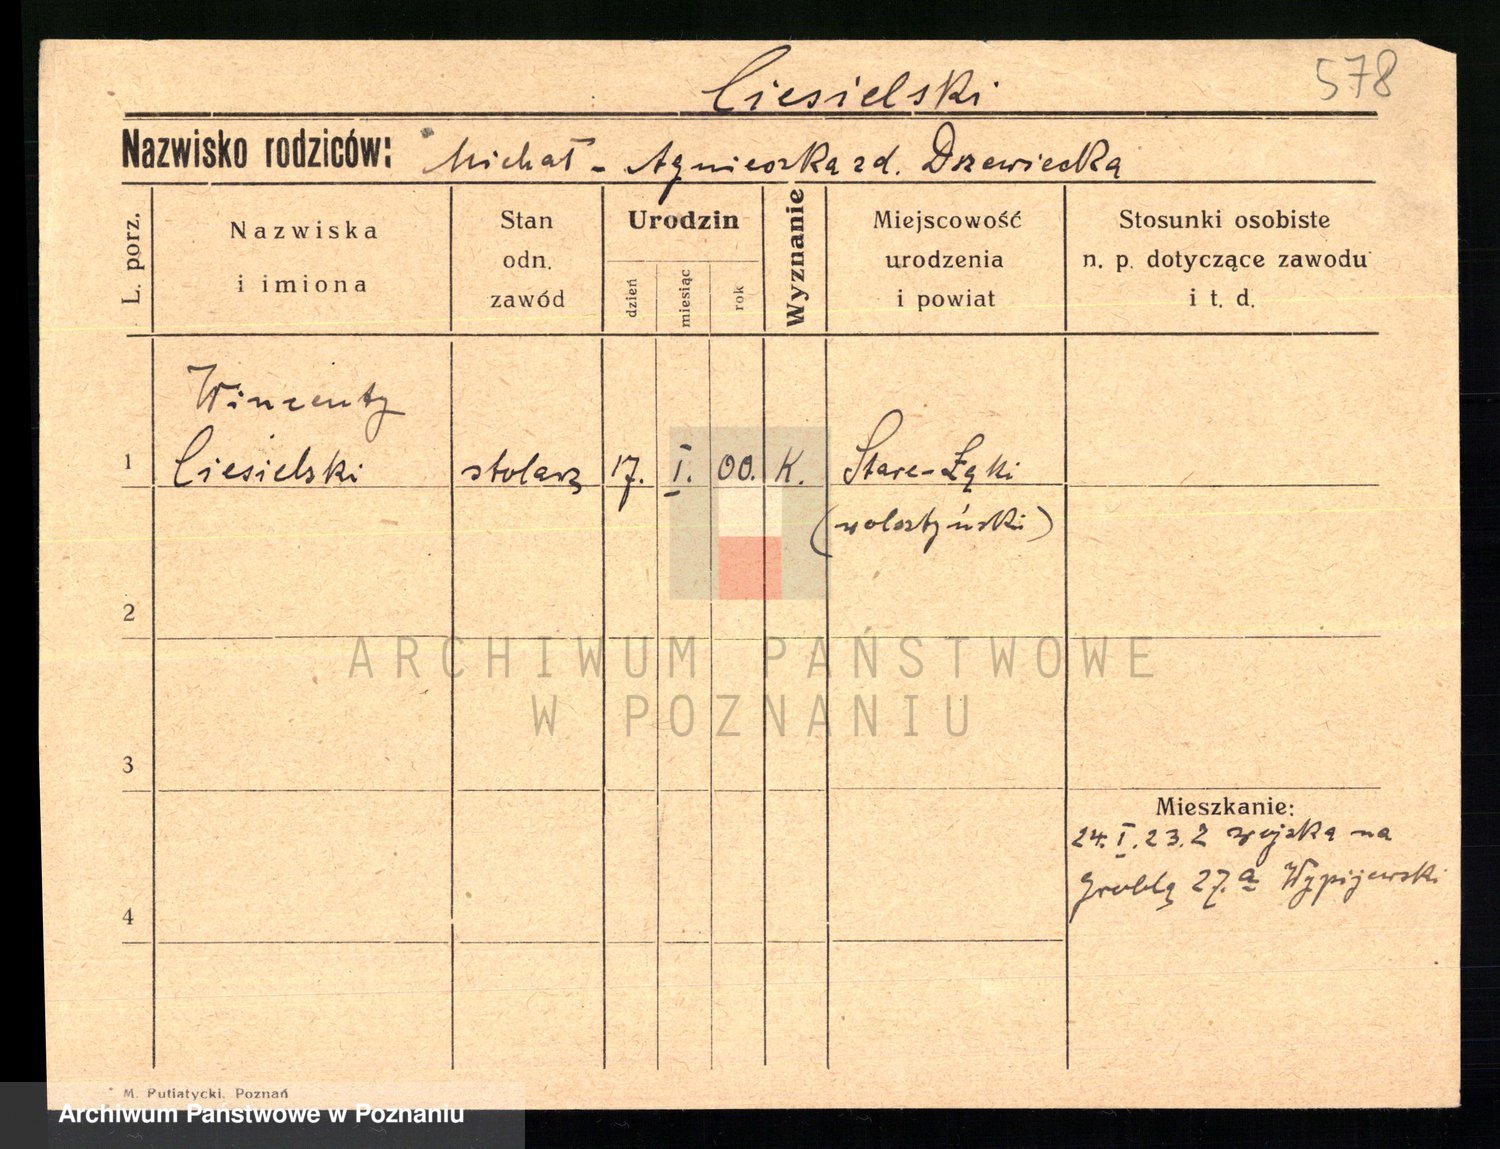 578
Ciesielski
Nazwisko rodziców: Michał - Agnieszka zd. Drzewiecka
L. porz.
Nazwiska
i imiona
Stan
odn.
zawód
Urodzin
dzień
miesiąc
rok
Wyznanie
Miejscowość
urodzenia
i powiat
Stosunki osobiste
n. p. dotyczące zawodu
i t. d.
Winzenty
1 Ciesielski stolarz 17. I. 00. K. Stare-Łąki
(wolsztyński)
2
ARCHIWUM PAŃSTWOWE
W POZNANIU
3
Mieszkanie:
24. I. 23. Z wojska na
Groblą 27.a Wypijewski
4
M. Putiatycki. Poznań
Archiwum Państwowe w Poznaniu